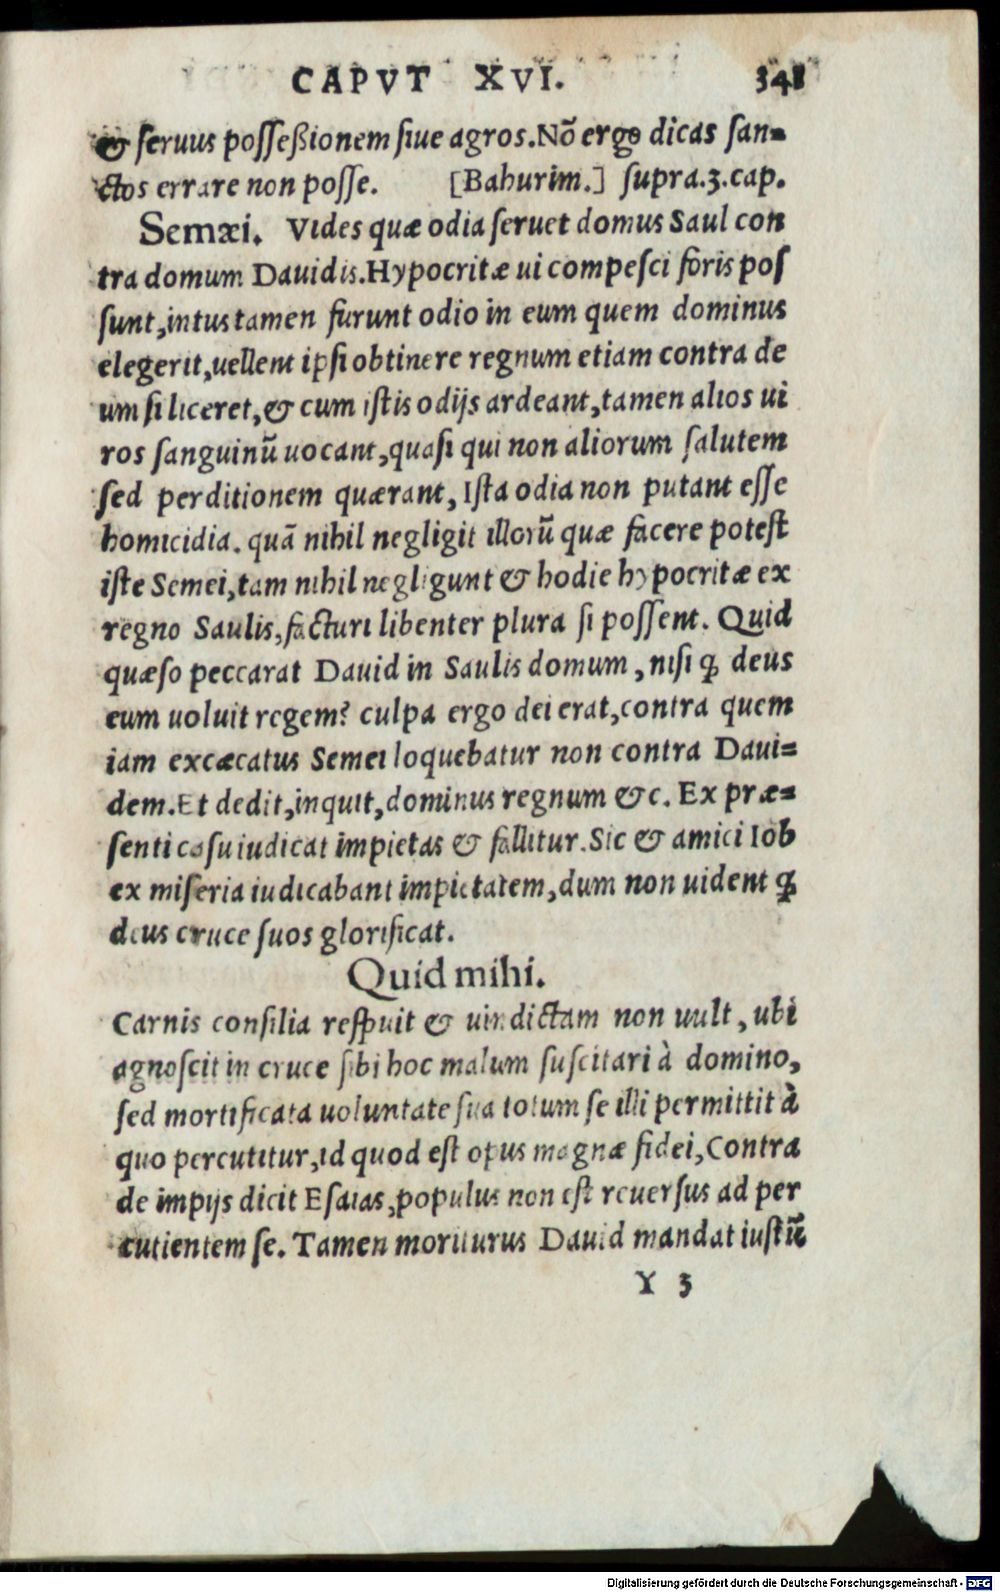 CAPVT XVI. 341
& ſeruus poſſeßionem ſiue agros. Nõ ergo dicas ſan=
ctos errare non poſſe. [Bahurim.] ſupra.3.cap.
Semæi. Vides quæ odia ſeruet domus Saul con
tra domum Dauidis. Hypocritæ ui compeſci foris poſ
ſunt, intus tamen furunt odio in eum quem dominus
elegerit, uellent ipſi obtinere regnum etiam contra de
um ſi liceret, & cum iſtis odijs ardeant, tamen alios ui
ros ſanguinũ uocant, quaſi qui non aliorum ſalutem
ſed perditionem quærant, Iſta odia non putant eſſe
homicidia. quã nihil negligit illorũ quæ facere poteſt
iſte Semei, tam nihil negligunt & hodie hypocritæ ex
regno Saulis, facturi libenter plura ſi poſſent. Quid
quæſo peccarat Dauid in Saulis domum, niſi ꝙ deus
eum uoluit regem? culpa ergo dei erat, contra quem
iam excæcatus Semei loquebatur non contra Daui=
dem. Et dedit, inquit, dominus regnum &c. Ex præ=
ſenti caſu iudicat impietas & fallitur. Sic & amici Iob
ex miſeria iudicabant impietatem, dum non uident ꝙ
deus cruce ſuos glorificat.
Quid mihi.
Carnis conſilia reſpuit & uindictam non uult, ubi
agnoſcit in cruce ſibi hoc malum ſuſcitari à domino,
ſed mortificata uoluntate ſua totum ſe illi permittit à
quo percutitur, id quod eſt opus magnæ fidei, Contra
de impijs dicit Eſaias, populus non eſt reuerſus ad per
cutientem ſe. Tamen moriturus Dauid mandat iuſtũ
Y 3
Digitalisierung gefördert durch die Deutsche Forschungsgemeinschaft - DFG